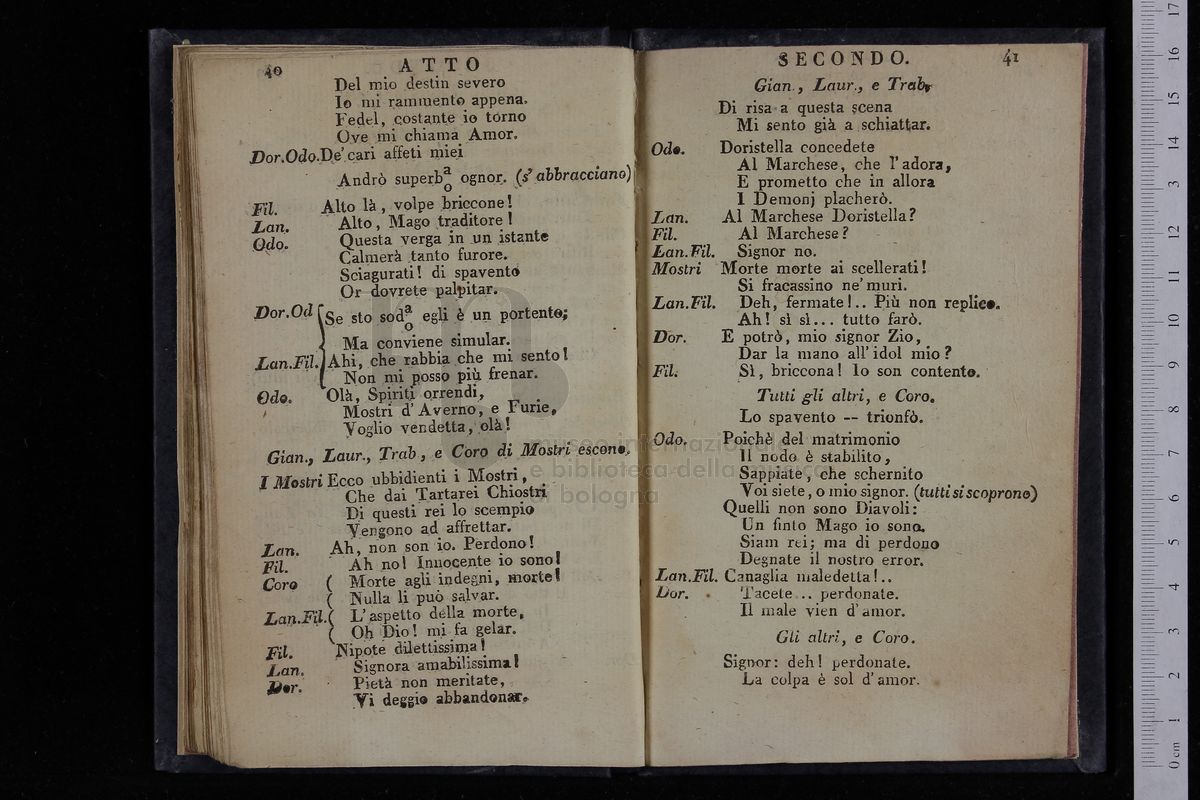 40 ATTO
Del mio destin severo
Io mi rammento appena.
Fedel, costante io torno
Ove mi chiama Amor.
Dor.Odo. De' cari affeti miei
Andrò superb a/o ognor. (s' abbracciano)
Fil. Alto là, volpe briccone!
Lan. Alto, Mago traditore!
Odo. Questa verga in un istante
Calmerà tanto furore.
Sciagurati! di spavento
Or dovrete palpitar.
Dor.Od { Se sto sod a/o egli è un portento;
Ma conviene simular.
Lan.Fil. Ahi, che rabbia che mi sento!
Non mi posso più frenar.
Odo. Olà, Spiriti orrendi,
Mostri d'Averno, e Furie,
Voglio vendetta, olà!
Gian., Laur., Trab, e Coro di Mostri escono.
I Mostri Ecco ubbidienti i Mostri,
Che dai Tartarei Chiostri
Di questi rei lo scempio
Vengono ad affrettar.
Lan. Ah, non son io. Perdono!
Fil. Ah no! Innocente io sono!
Coro ( Morte agli indegni, morte!
( Nulla li può salvar.
Lan.Fil. ( L'aspetto della morte,
( Oh Dio! mi fa gelar.
Fil. Nipote dilettissima!
Lan. Signora amabilissima!
Dor. Pietà non meritate,
Vi deggio abbandonar.
SECONDO. 41
Gian., Laur., e Trab.
Di risa a questa scena
Mi sento già a schiattar.
Odo. Doristella concedete
Al Marchese, che l'adora,
E prometto che in allora
I Demonj placherò.
Lan. Al Marchese Doristella?
Fil. Al Marchese?
Lan.Fil. Signor no.
Mostri Morte morte ai scellerati!
Si fracassino ne' muri.
Lan.Fil. Deh, fermate!.. Più non replico.
Ah! sì sì... tutto farò.
Dor. E potrò, mio signor Zio,
Dar la mano all'idol mio?
Fil. Sì, briccona! Io son contento.
Tutti gli altri, e Coro.
Lo spavento -- trionfò.
Odo. Poichè del matrimonio
Il nodo è stabilito,
Sappiate, che schernito
Voi siete, o mio signor. (tutti si scoprono)
Quelli non sono Diavoli:
Un finto Mago io sono.
Siam rei; ma di perdono
Degnate il nostro error.
Lan.Fil. Canaglia maledetta!..
Dor. Tacete... perdonate.
Il male vien d'amor.
Gli altri, e Coro.
Signor: deh! perdonate.
La colpa è sol d'amor.
museo internazionale
e biblioteca della musica
di bologna
0 cm 1 2 3 4 5 6 7 8 9 10 11 12 13 14 15 16 17